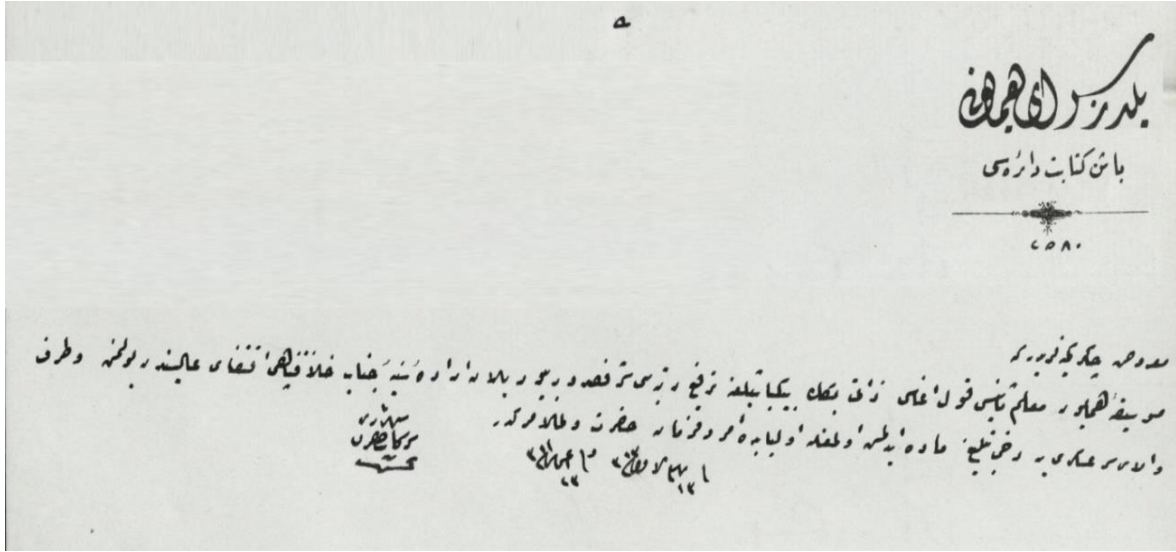 یلدز سرای همایونی
باش كتابت دائره‌سی
٢٥٨٠
معروض چاكر كمینه‌لریدر
موسیقهٔ همایون معلم ثانیسی قول اغاسی ذاتی بكك بیكباشیلغه ترفیع رتبه‌سی شرفصدور بیوریلان ارادهٔ سنیهٔ جناب خلافتپناهی اقتضای عالیسندن بولنمش وطرف
والای سر عسكری‌یه دخی تبلیغ ماده ایدلمش اولمغله اولبابده امر وفرمان حضرت ولی الامركدر
سر كاتب حضرت شهریاری
تحسین